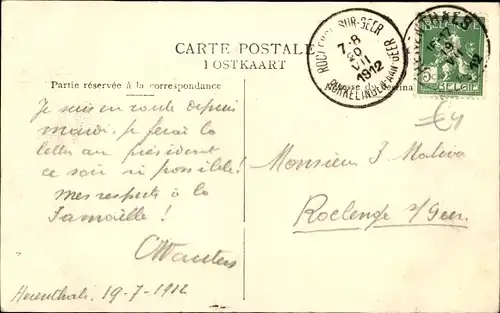 CARTE POSTALE
POSTKAART
Partie réservée à la correspondance
ROCLENGE-SUR-GEER
7-8
20
VII
1912
RUKKELINGEN-AAN-GEER
HERENTHALS
Je suis en route depuis
mardi. Je ferai la
lettre au président
ce soir si possible!
Mes respects à la
famille!
CWauters
Herenthals, 19-7-1912
Monsieur J
Roclenge s/Geer.